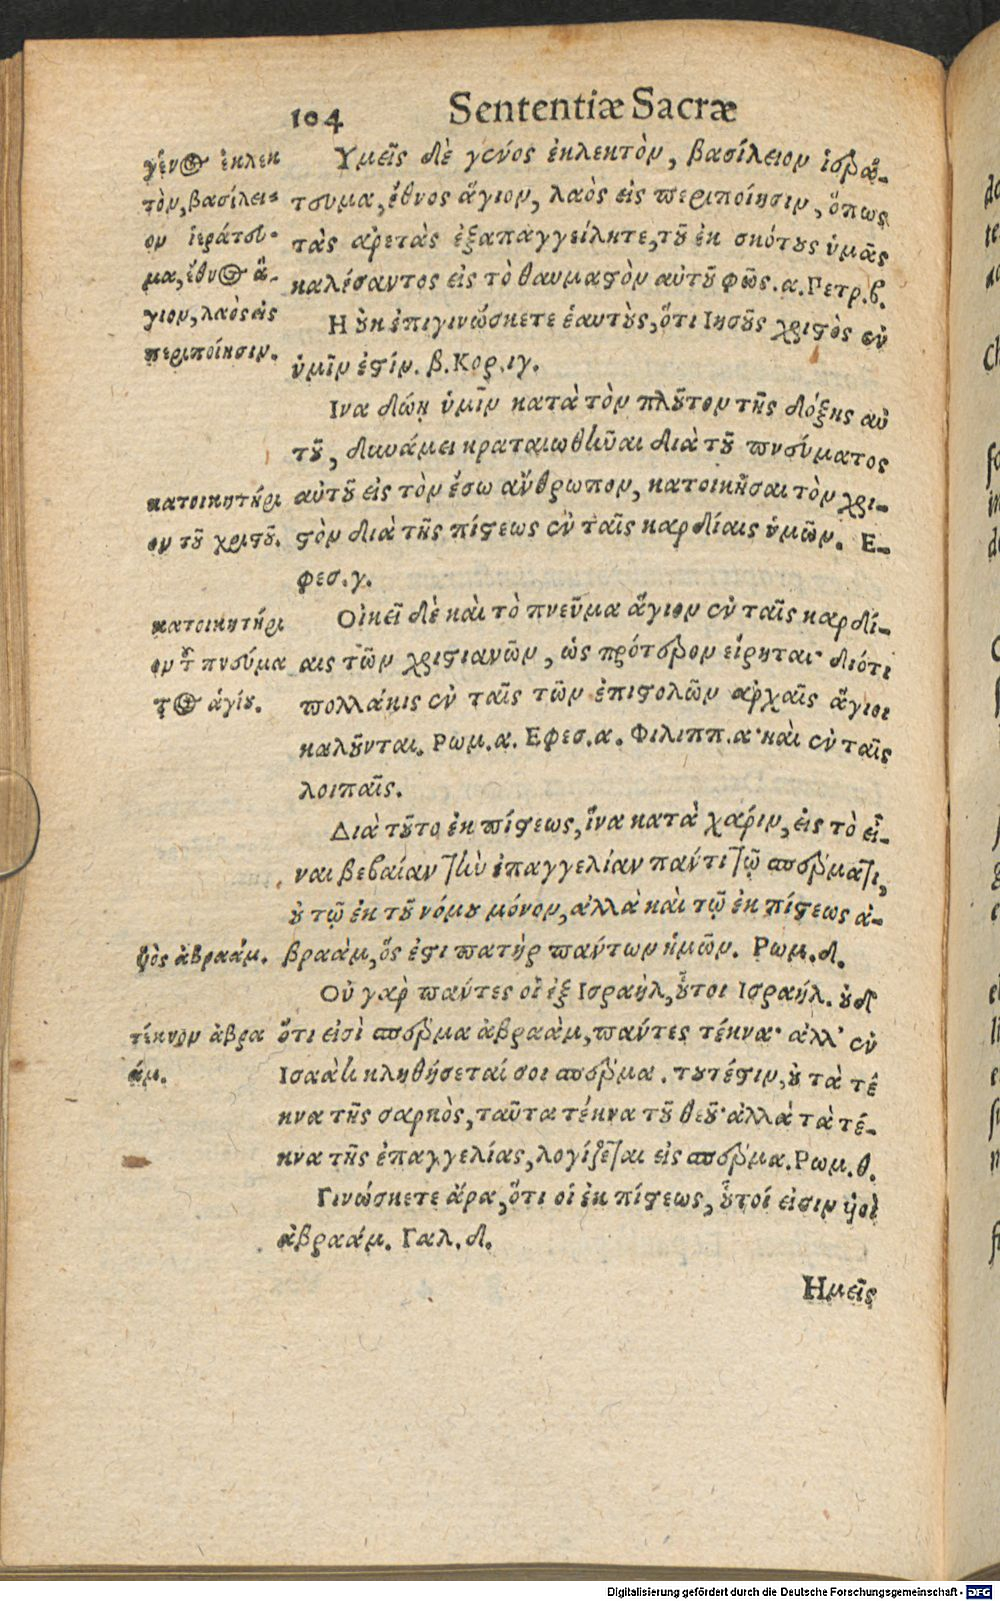 104 Sententiæ Sacræ
γένος ἐκλεκ
τὸν, βασίλει-
ον ἱεράτευ-
μα, ἔθνος ἅ-
γιον, λαὸς εἰς
περιποίησιν.
Υμεῖς δὲ γένος ἐκλεκτὸν, βασίλειον ἱερά-
τευμα, ἔθνος ἅγιον, λαὸς εἰς περιποίησιν, ὅπως
τὰς ἀρετὰς ἐξαπαγγείλητε, τοῦ ἐκ σκότους ὑμᾶς
καλέσαντος εἰς τὸ θαυμαστὸν αὑτοῦ φῶς. α. Πετρ. β.
Η οὐκ ἐπιγινώσκετε ἑαυτοὺς, ὅτι Ιησοῦς χριστὸς ἐν
ὑμῖν ἐστίν. β. Κορ. ιγ.
Ινα δώῃ ὑμῖν κατὰ τὸν πλοῦτον τῆς δόξης αὑ
τοῦ, δυνάμει κραταιωθῆναι διὰ τοῦ πνεύματος
κατοικητήρι
ον τοῦ χριστοῦ.
αὑτοῦ εἰς τὸν ἔσω ἄνθρωπον, κατοικῆσαι τὸν χρι-
στὸν διὰ τῆς πίστεως ἐν ταῖς καρδίαις ὑμῶν. Ε-
φεσ. γ.
κατοικητήρι
ον τοῦ πνεύμα
τος ἁγίου.
Οἰκεῖ δὲ καὶ τὸ πνεῦμα ἅγιον ἐν ταῖς καρδί-
αις τῶν χριστιανῶν, ὡς πρότερον εἴρηται· διότι
πολλάκις ἐν ταῖς τῶν ἐπιστολῶν ἀρχαῖς ἅγιοι
καλοῦνται. Ρωμ. α. Εφεσ. α. Φιλιππ. α· καὶ ἐν ταῖς
λοιπαῖς.
Διὰ τοῦτο ἐκ πίστεως, ἵνα κατὰ χάριν, εἰς τὸ εἶ-
ναι βεβαίαν τὴν ἐπαγγελίαν παντὶ τῷ σπέρματι,
οὐ τῷ ἐκ τοῦ νόμου μόνον, ἀλλὰ καὶ τῷ ἐκ πίστεως ἀ-
υἱὸς ἀβραάμ.
βραὰμ, ὅς ἐστι πατὴρ πάντων ἡμῶν. Ρωμ. δ.
Οὐ γὰρ πάντες οἱ ἐξ Ισραὴλ, οὗτοι Ισραήλ. οὐδ'
τέκνον ἀβρα
άμ.
ὅτι εἰσὶ σπέρμα ἀβραὰμ, πάντες τέκνα· ἀλλ' ἐν
Ισαὰκ κληθήσεταί σοι σπέρμα. τουτέστιν, οὐ τὰ τέ
κνα τῆς σαρκὸς, ταῦτα τέκνα τοῦ θεοῦ· ἀλλὰ τὰ τέ-
κνα τῆς ἐπαγγελίας, λογίζεται εἰς σπέρμα. Ρωμ. θ.
Γινώσκετε ἄρα, ὅτι οἱ ἐκ πίστεως, οὗτοί εἰσιν υἱοὶ
ἀβραάμ. Γαλ. δ.
Ημεῖς
Digitalisierung gefördert durch die Deutsche Forschungsgemeinschaft - DFG